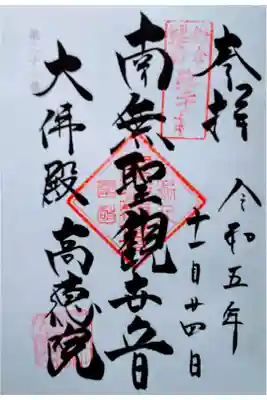 奉拝
令和五年
十一月廿四日
南無聖観世音
大佛殿 高徳院